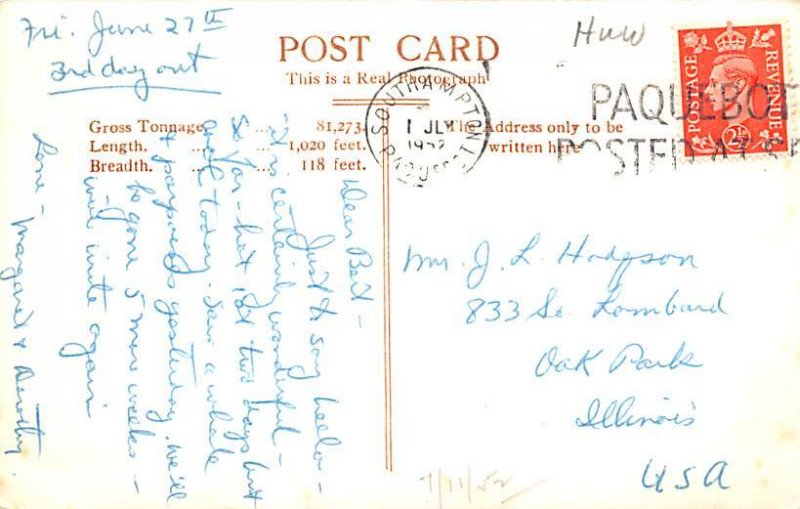 Fri. June 27th
3rd day out
POST CARD
This is a Real Photograph
Gross Tonnage. ... ... 81,273.
Length. ... ... 1,020 feet.
Breadth. ... ... 118 feet.
The Address only to be
written here
SOUTHAMPTON
1 JLY
1952
PAQUEBOT
POSTED AT SE
POSTAGE
REVENUE
2½D
HWW
Dear Bert -
Just to say hello -
it is certainly wonderful -
so far - hot 1st two days but
cool today. Saw a whale
& porpoises yesterday. We'll
be gone 5 more weeks -
will write again
Love - Margaret & Dorothy
Mr. J. L. Hodgson
833 So. Lombard
Oak Park
Illinois
USA
7/11/52